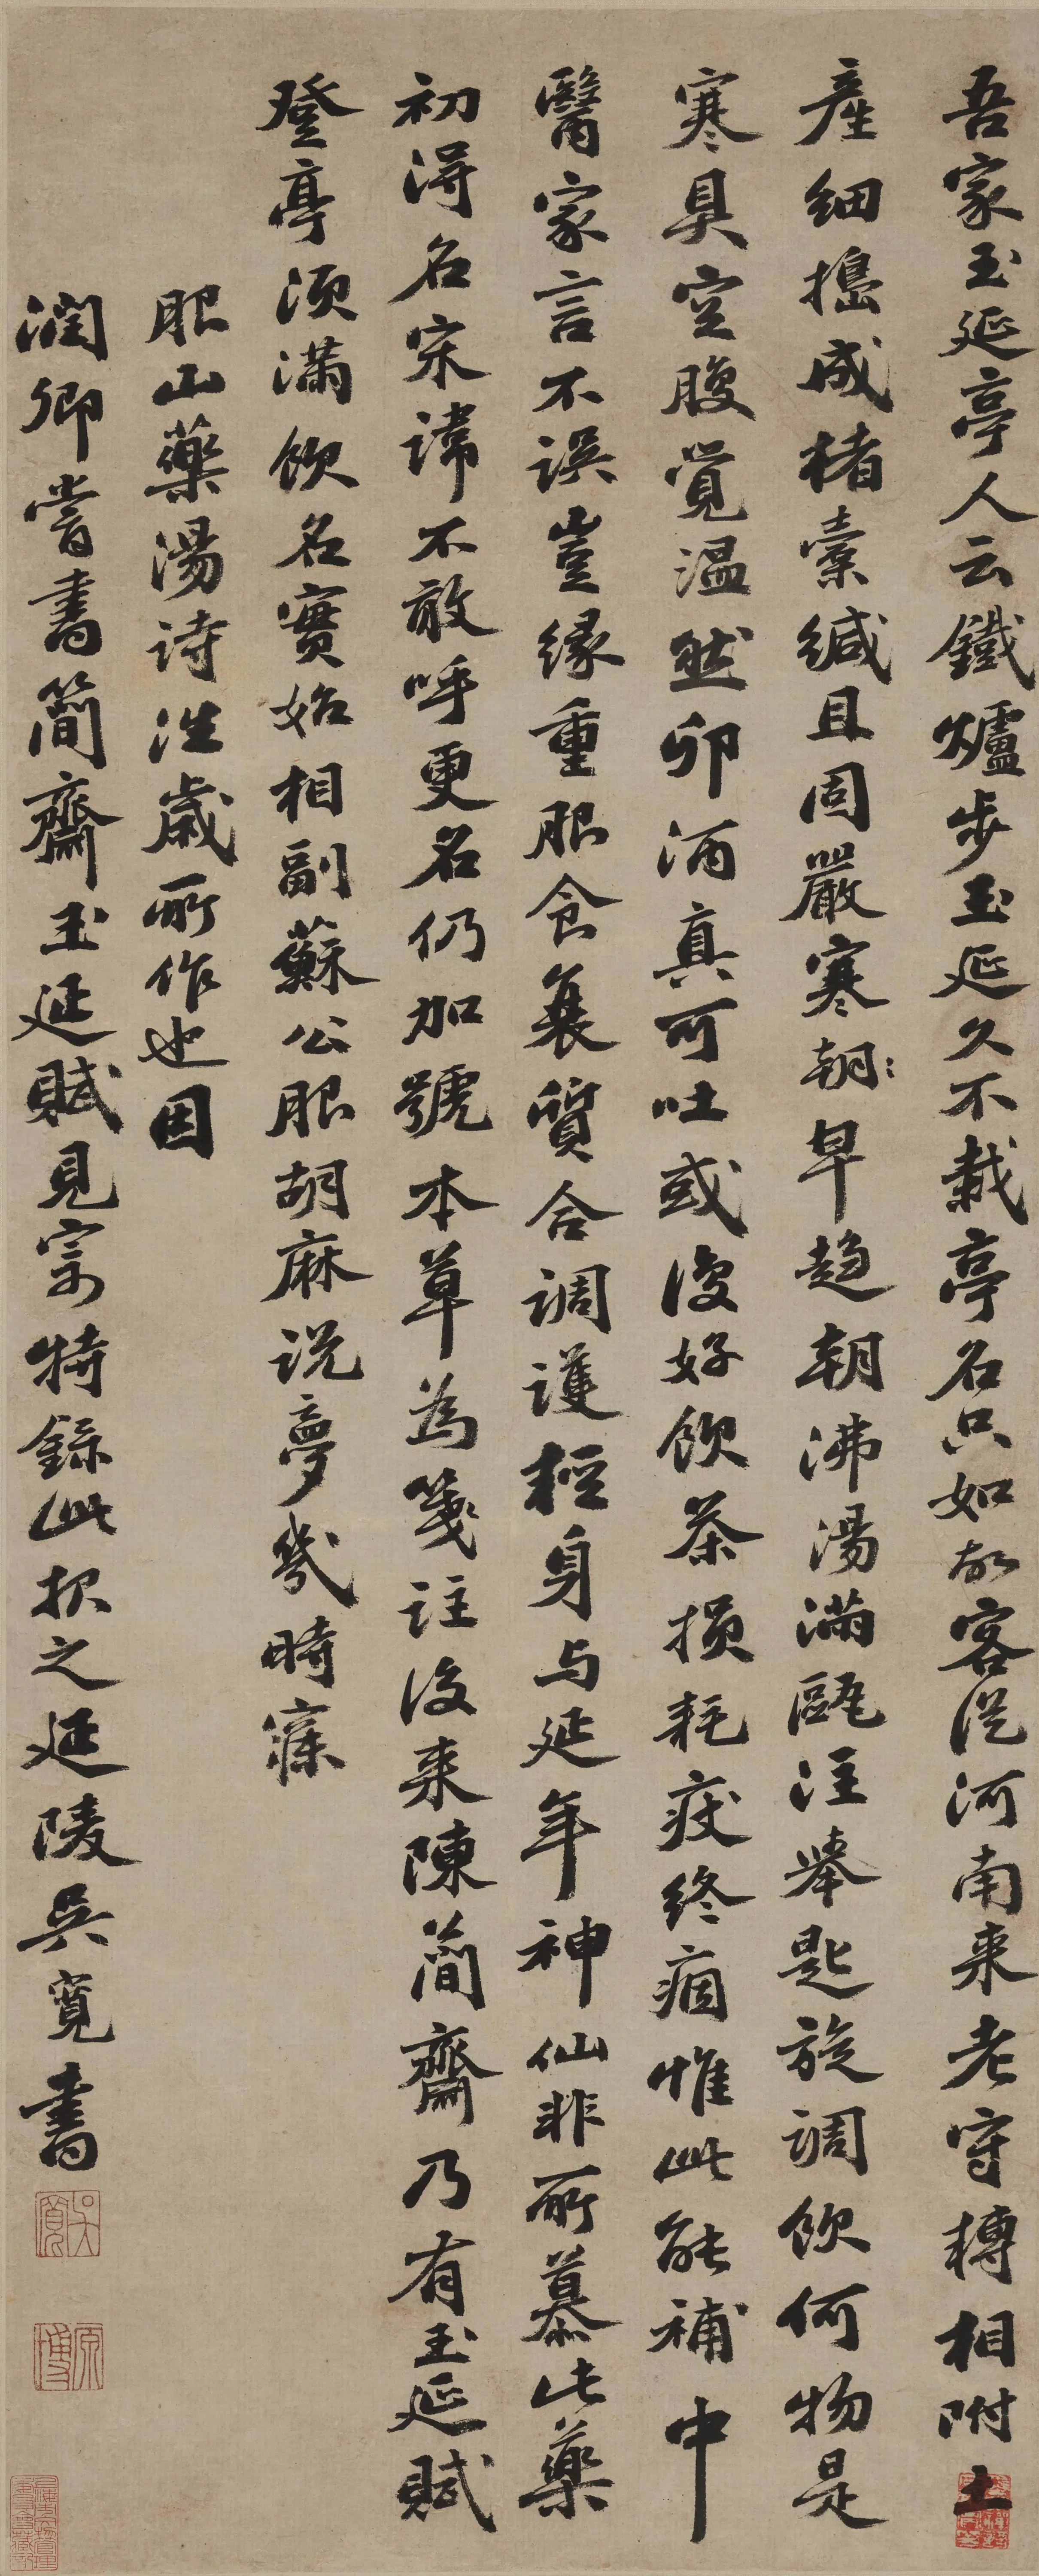 吾家玉延亭人云鐵爐步玉延久不栽亭名只如故客從河南來老守轉相附土
產細搗成楮囊緘且固嚴寒朝：早趨朝沸湯滿甌注舉匙旋調飲何物是
寒具空腹覺溫然卯酒真可吐或復好飲茶損耗疾終痼惟此能補中
醫家言不誤豈緣重服食襄質合調護輕身与延年神仙非所慕此藥
初得名宋諱不敢呼更名仍加號本草為箋註後來陳簡齋乃有玉延賦
登亭須滿飲名實始相副蘇公服胡麻說夢幾時寤
服山藥湯詩往歲所作也因
潤卿嘗書簡齋玉延賦見寄特錄此報之延陵吳寬書
吳寬
原博